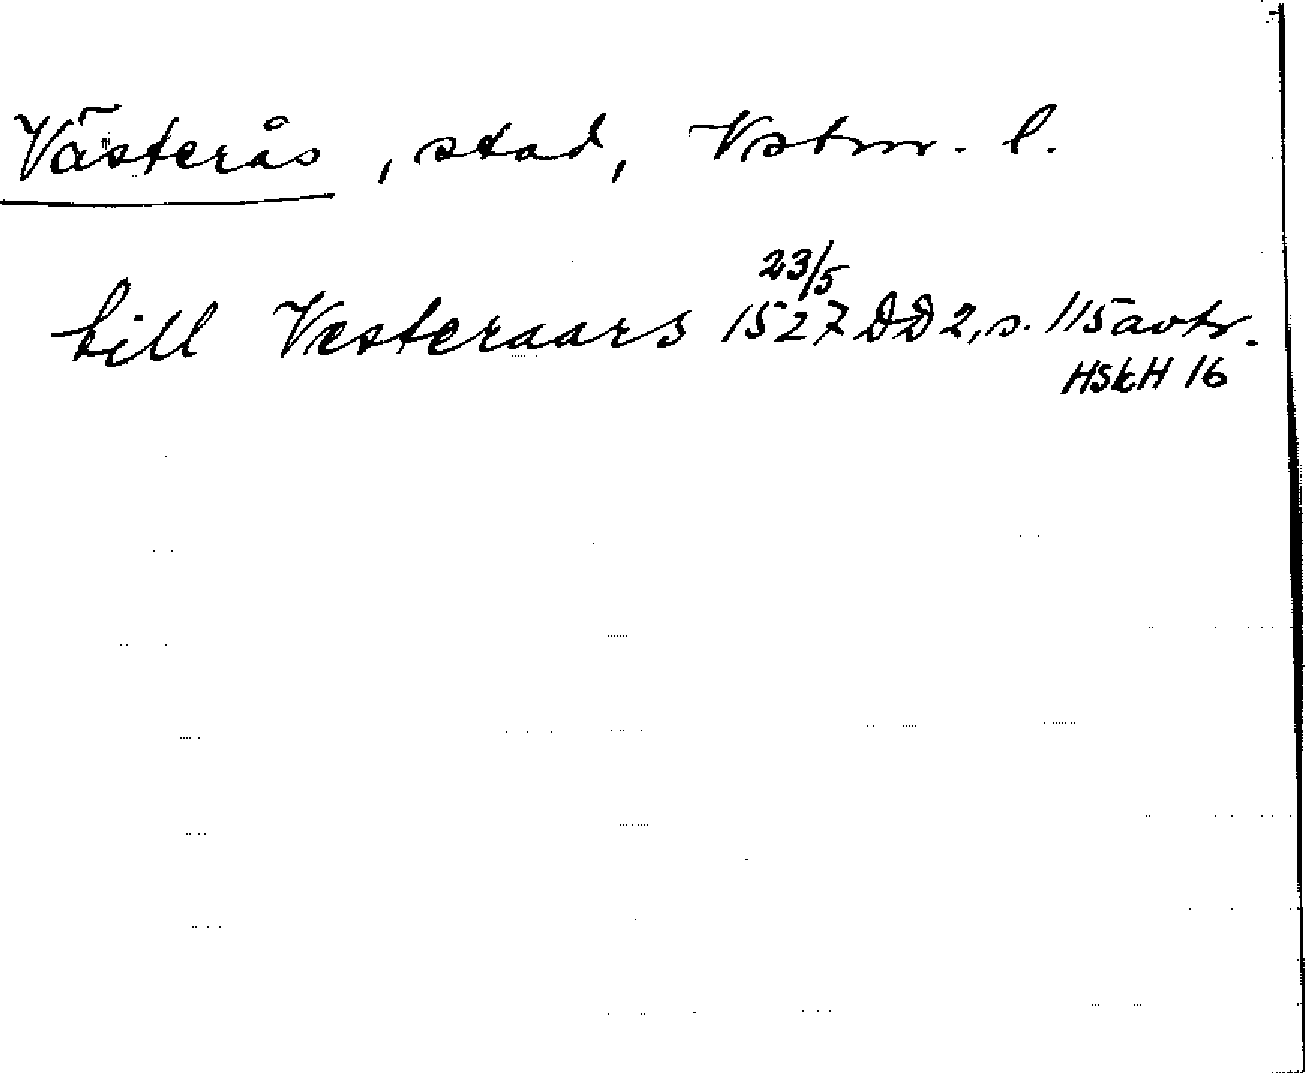 Västerås, stad, Vstm. l.
till Vesteraars 23/5 1527 DD 2, s. 115 avtr.
HSkH 16